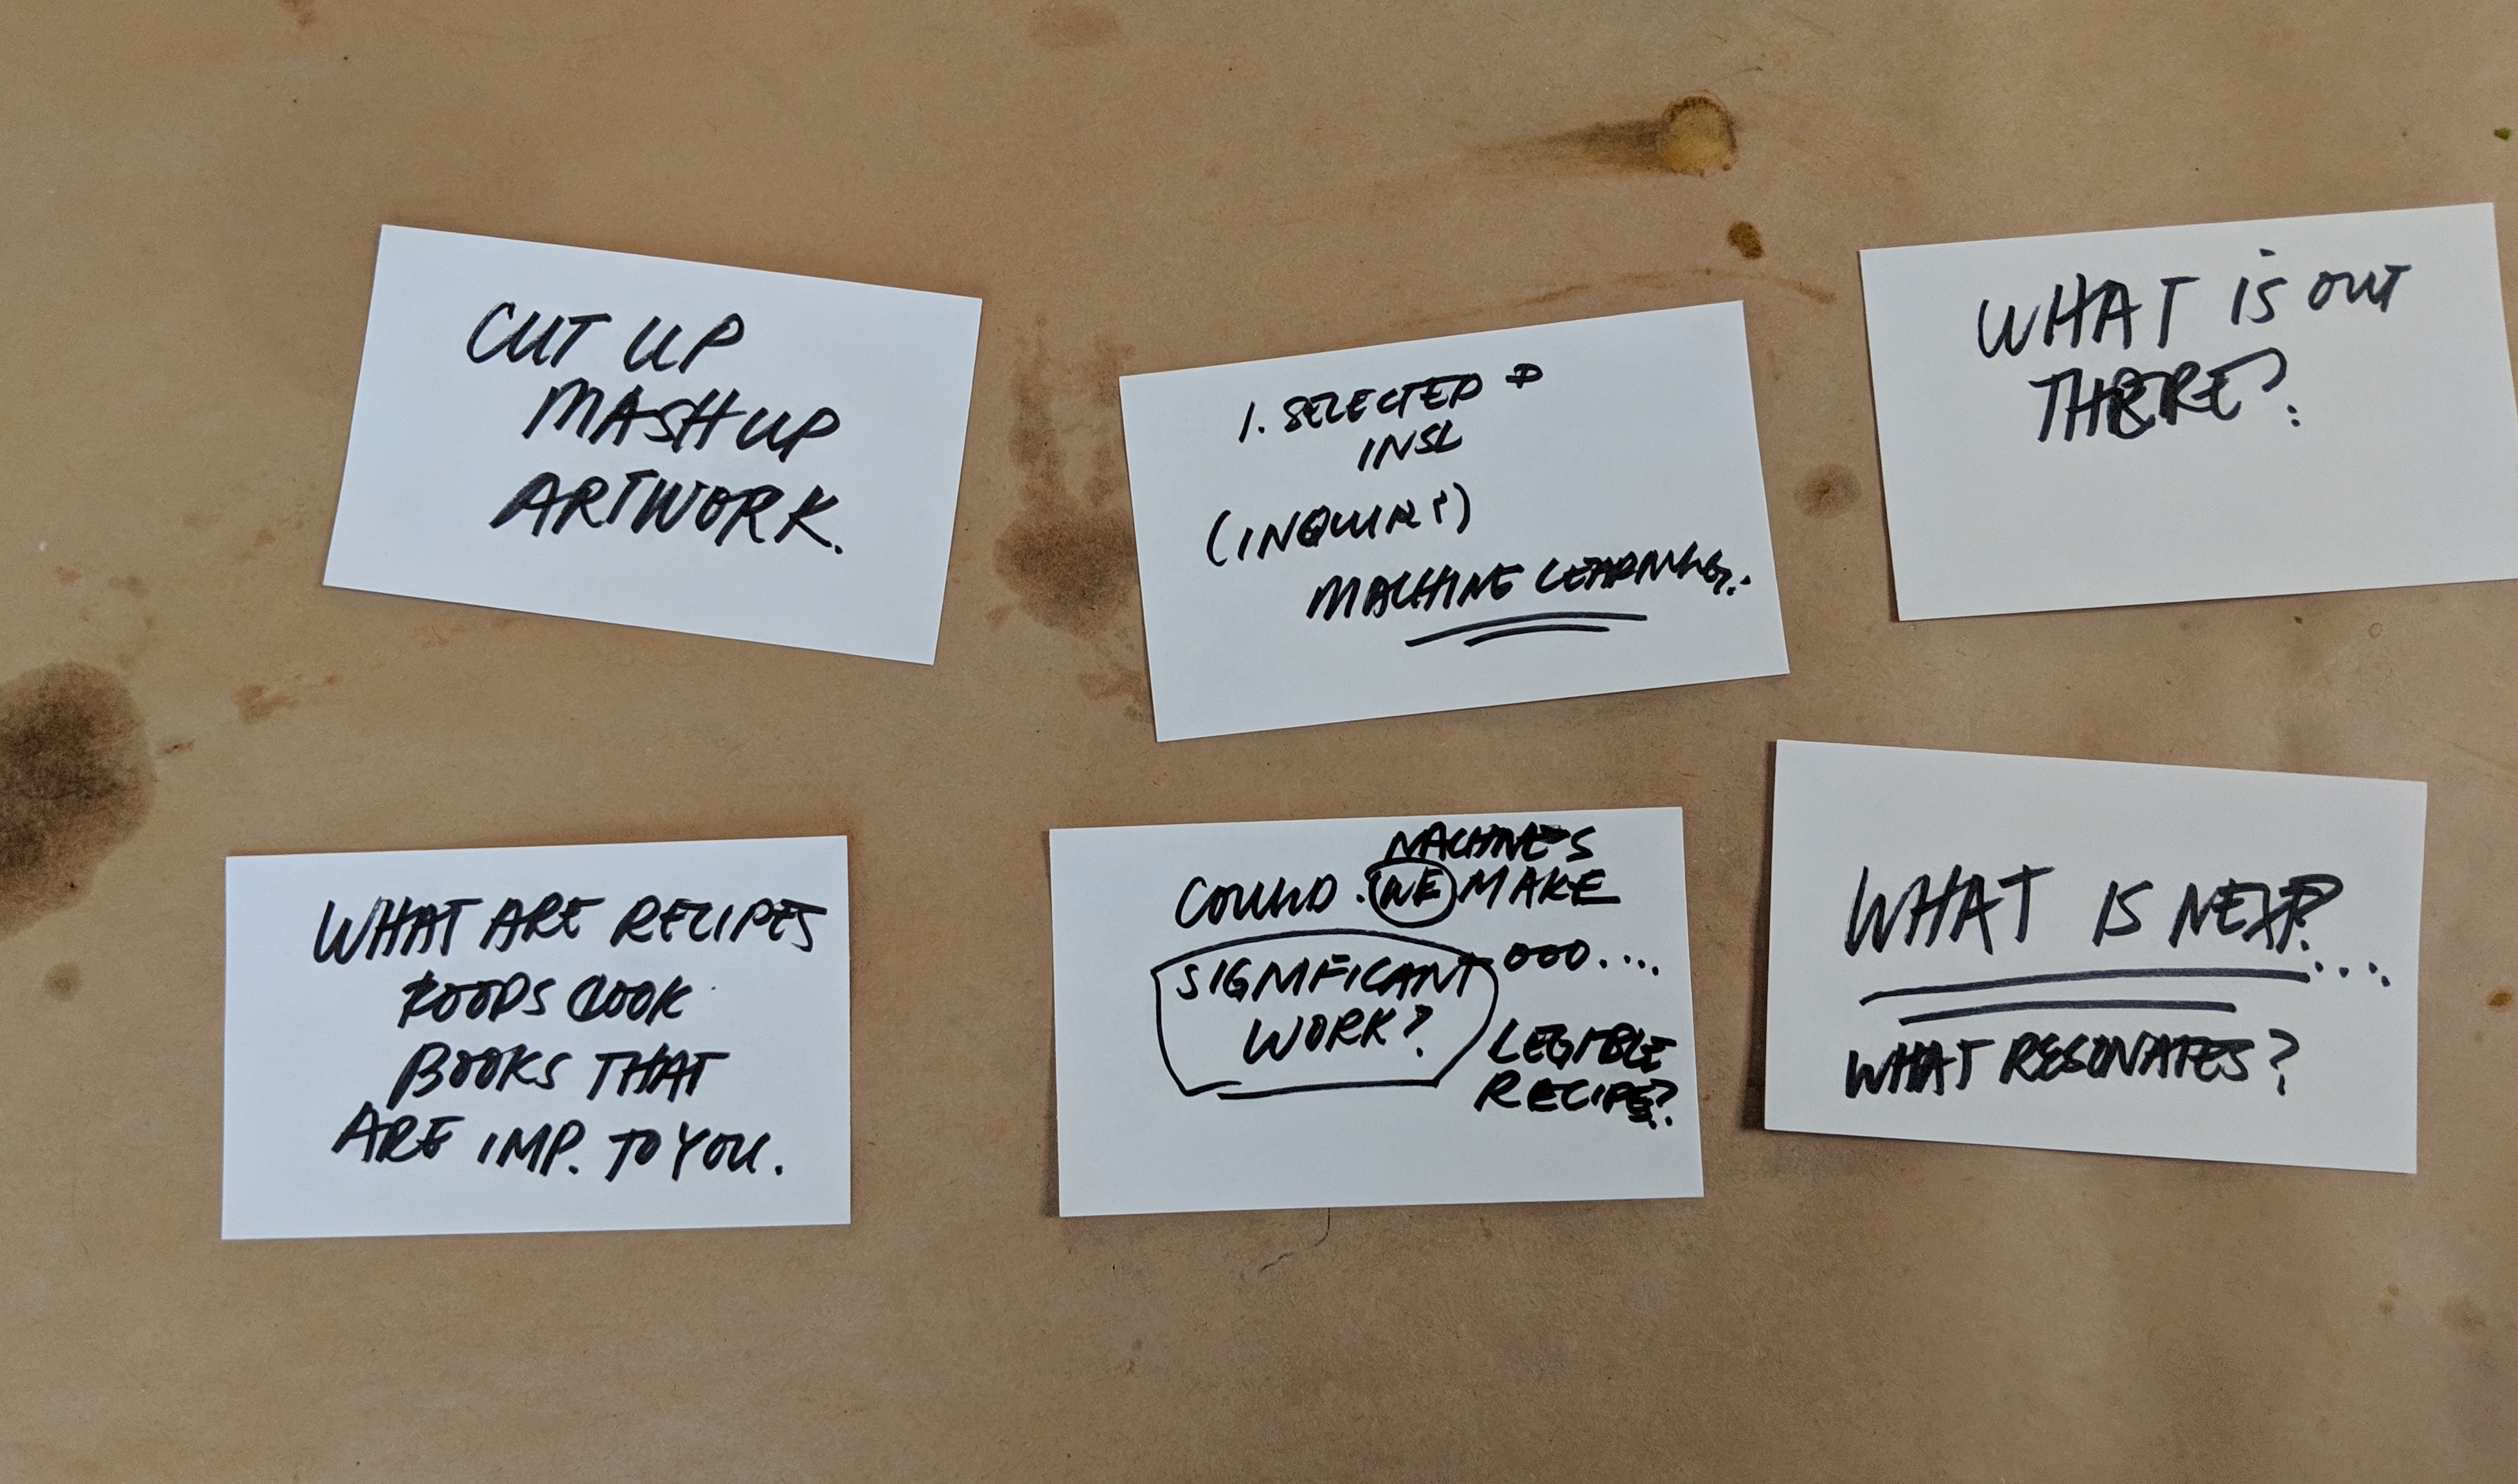 CUT UP
MASH UP
ARTWORK.
1. SELECTED
INSL
(INQUIRY)
MACHINE LEARNING..
WHAT IS OUT
THERE?
WHAT ARE RECIPES
FOODS COOK
BOOKS THAT
ARE IMP. TO YOU.
MACHINES
COULD WE MAKE
SIGNIFICANT OOO....
WORK?
LEGIBLE
RECIPE?
WHAT IS NEXT?...
WHAT RESONATES?